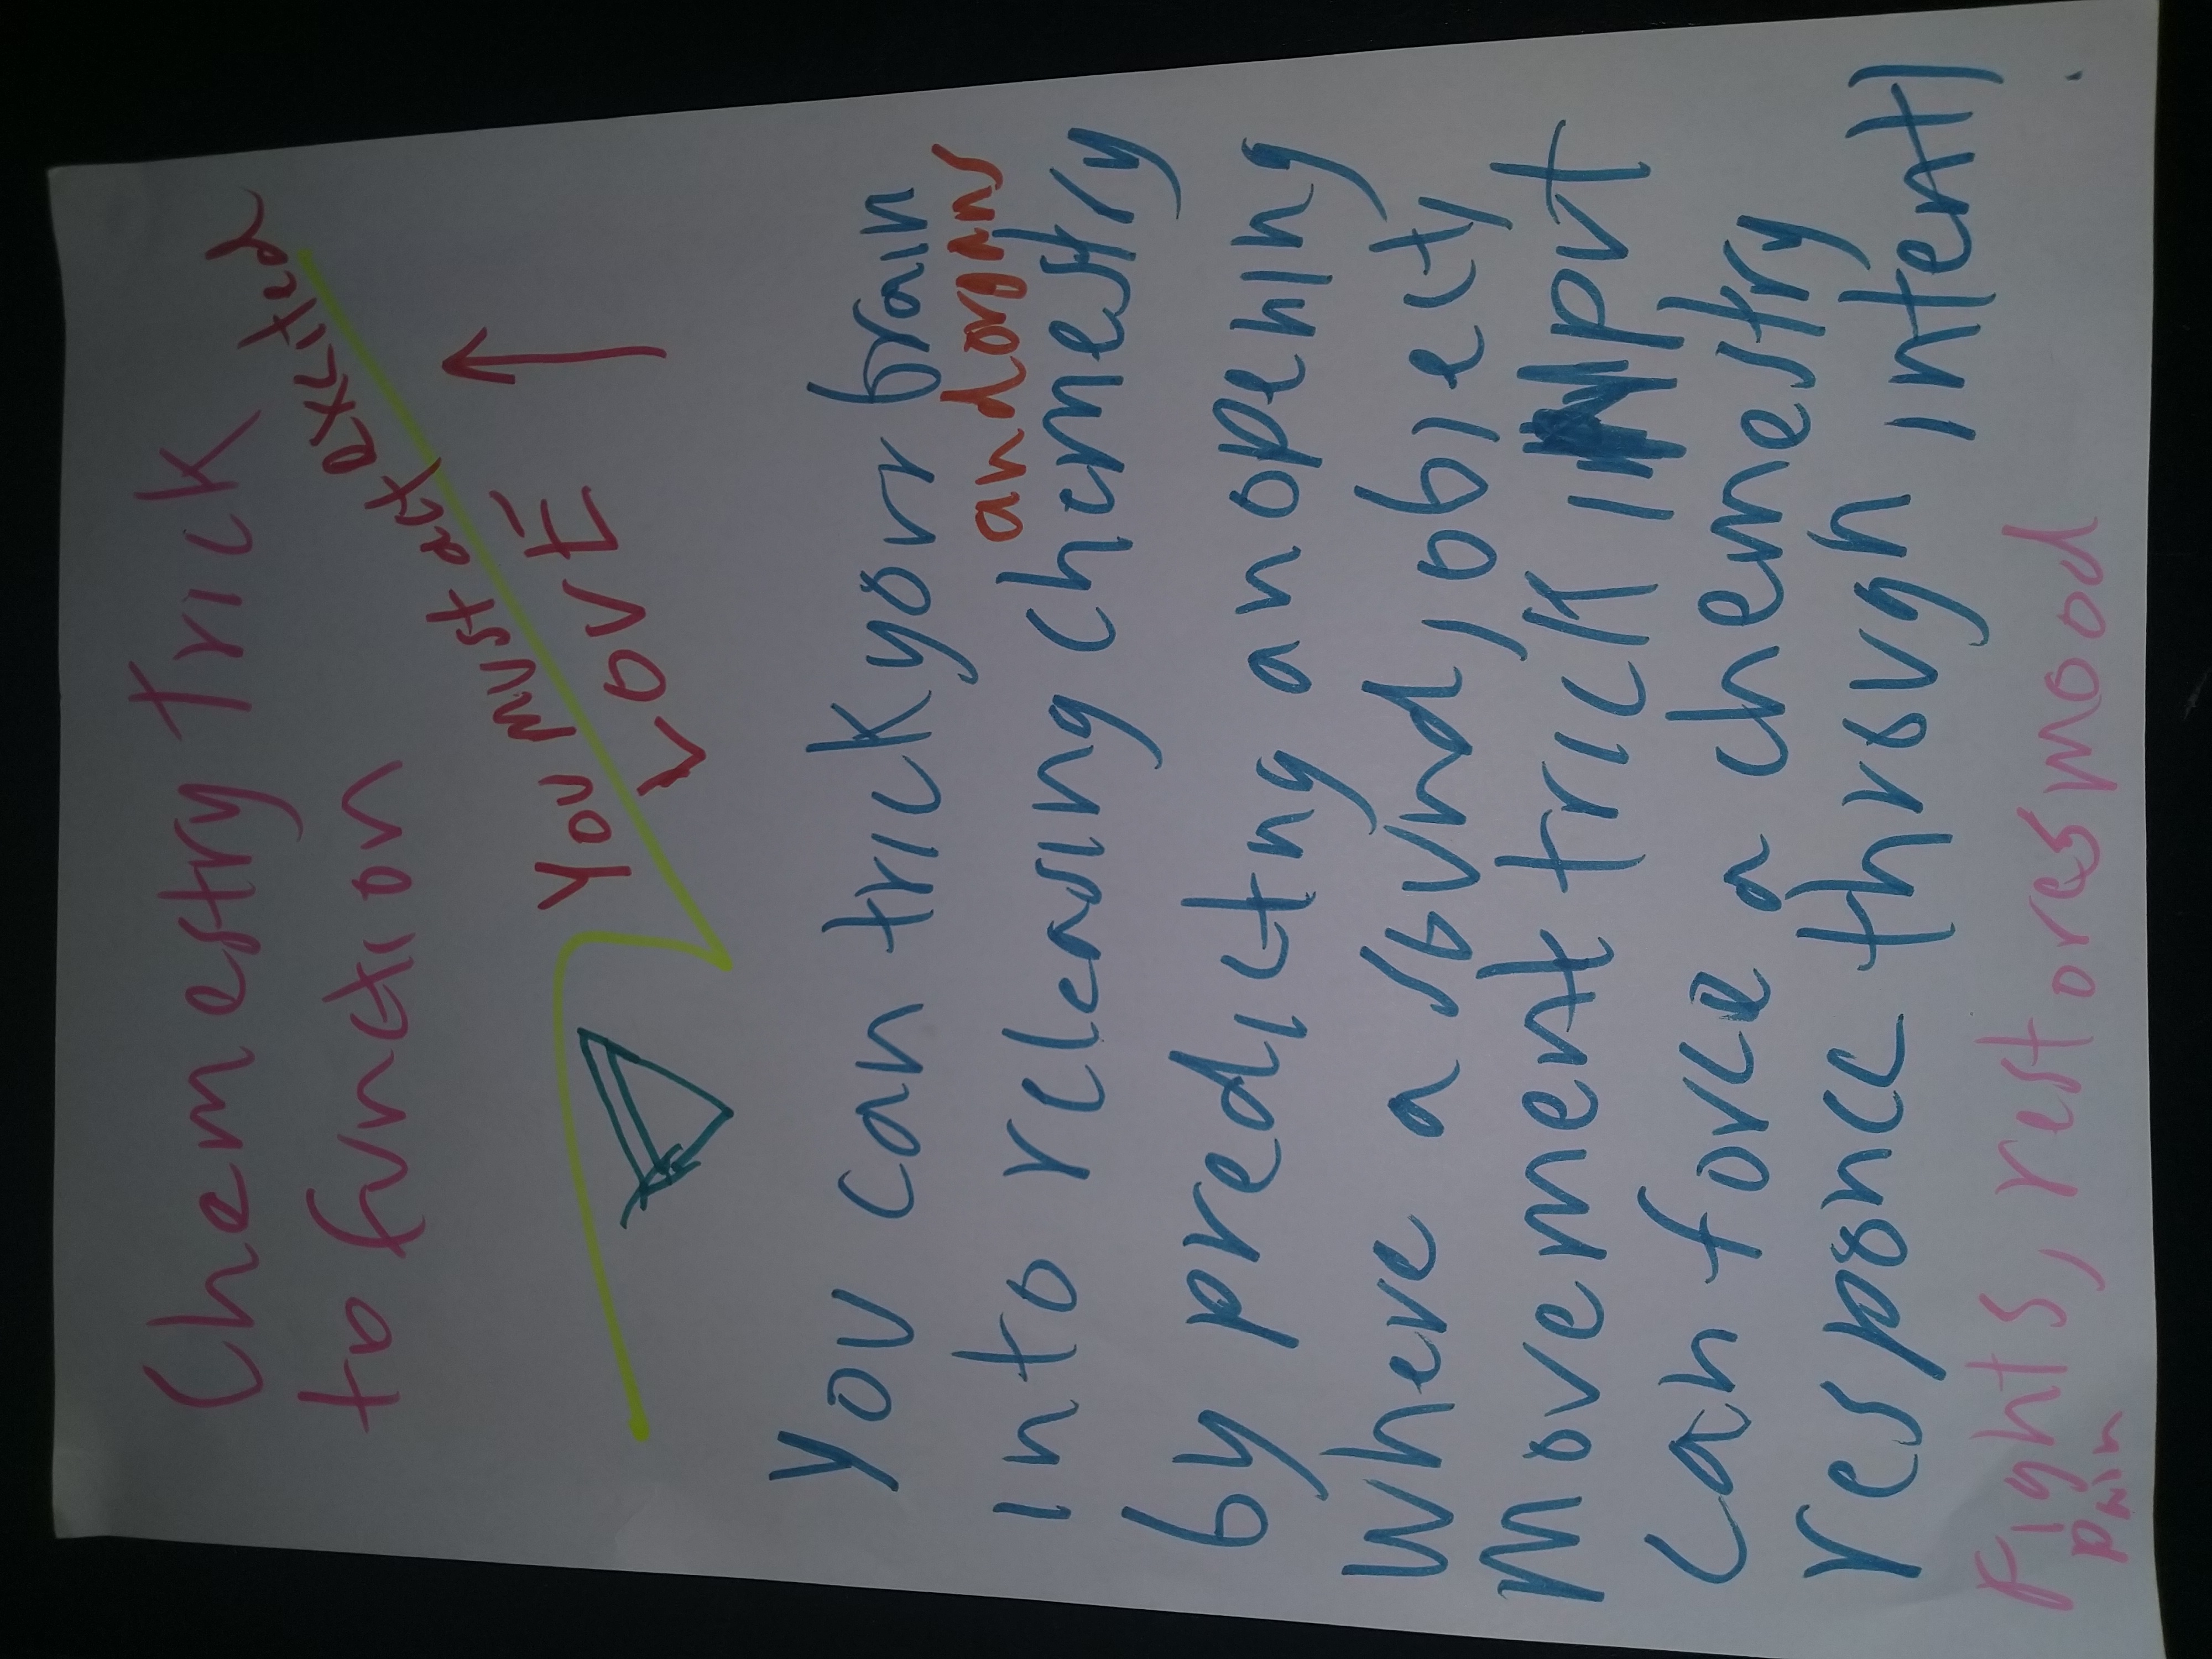 Chemestry Trick
to function
You must act excited
LOVE
You can trick your brain
and room
into releasing chemestry
by predicting an opening
where a sound, object
movement trick input
can force a chemestry
responce through intent
Fights, restores mood
pain